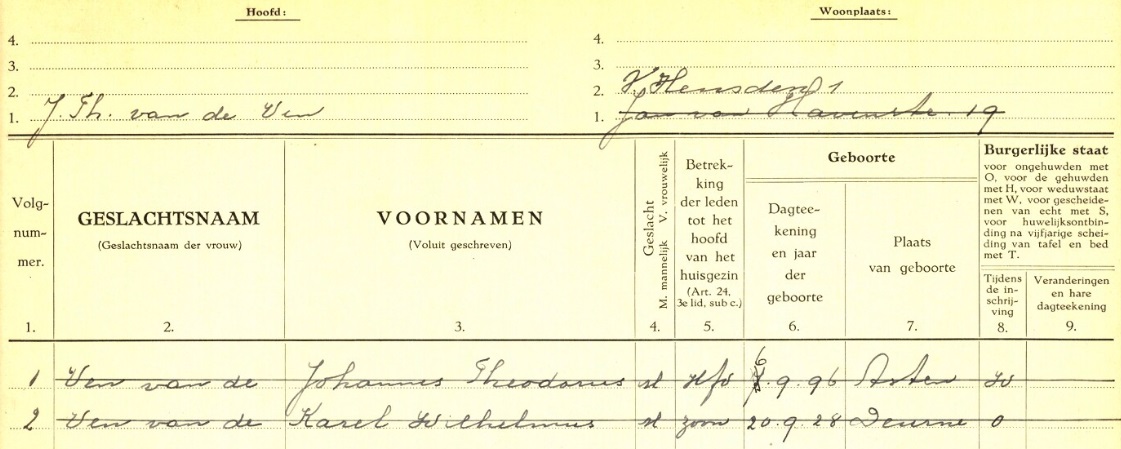 Hoofd: Woonplaats:
4. 4.
3. 3.
2. 2. V. Heusden 1
1. J. Th. van de Ven 1. Jan van Havenstr. 19
Volg-
num-
mer.
1.
GESLACHTSNAAM
(Geslachtsnaam der vrouw)
2.
VOORNAMEN
(Voluit geschreven)
3.
Geslacht
M. mannelijk V. vrouwelijk
4.
Betrek-
king
der leden
tot het
hoofd
van het
huisgezin
(Art. 24,
3e lid, sub c.)
5.
Geboorte
Dagtee-
kening
en jaar
der
geboorte
6.
Plaats
van geboorte
7.
Burgerlijke staat
voor ongehuwden met
O, voor de gehuwden
met H, voor weduwstaat
met W, voor gescheide-
nen van echt met S,
voor huwelijksontbin-
ding na vijfjarige schei-
ding van tafel en bed
met T.
Tijdens
de in-
schrij-
ving
8.
Veranderingen
en hare
dagteekening
9.
1 Ven van de Johannes Theodorus M Hfd 6.9.96 Asten W
2 Ven van de Karel Wilhelmus M zoon 20.9.28 Deurne O